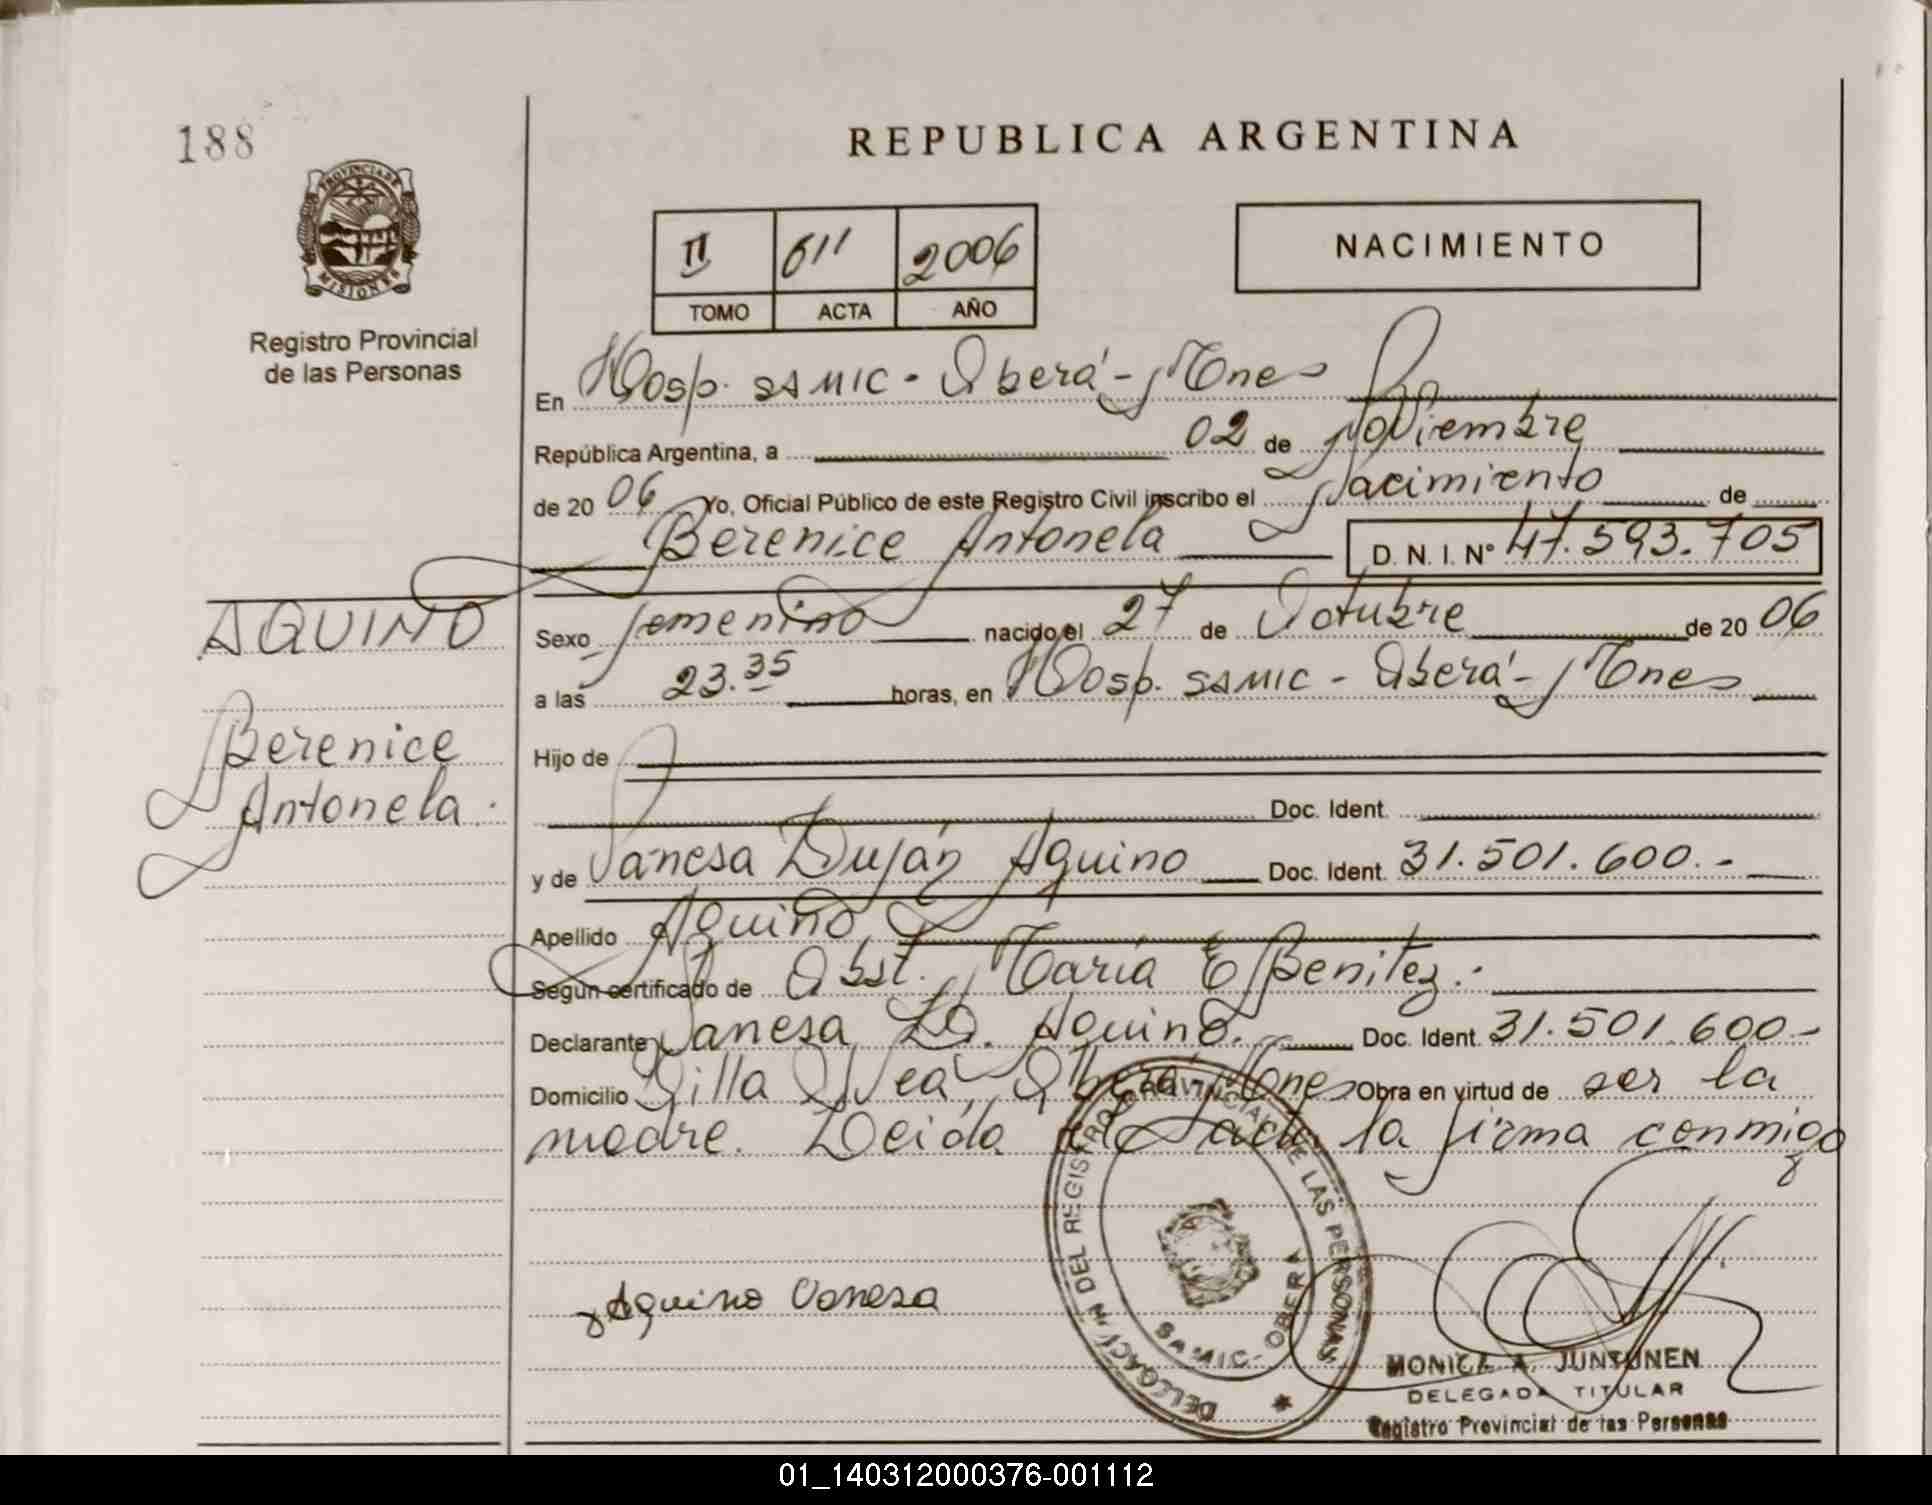 188
REPUBLICA ARGENTINA
PROVINCIA DE
MISIONES
Registro Provincial
de las Personas
II 611 2006
TOMO ACTA AÑO
NACIMIENTO
En Hosp. SAMIC - Oberá - Mnes
República Argentina, a 02 de Noviembre
de 20 06 Yo, Oficial Público de este Registro Civil inscribo el Nacimiento de
Berenice Antonela D. N. I. Nº 47.593.705
AQUINO
Berenice
Antonela.
Sexo femenino nacido el 27 de Octubre de 20 06
a las 23.35 horas, en Hosp. SAMIC - Oberá - Mnes
Hijo de
Doc. Ident.
y de Vanesa Luján Aquino Doc. Ident. 31.501.600.-
Apellido Aquino
Según certificado de Obst. María E Benitez.
Declarante Vanesa L. Aquino. Doc. Ident. 31.501.600-
Domicilio Villa Oberá-Mnes Obra en virtud de ser la
madre. Leida el acta la firma conmigo
Aquino Vanesa
DELEGACION DEL REGISTRO PROVINCIAL DE LAS PERSONAS
SAMIC - OBERA
MONICA A. JUNTUNEN
DELEGADA TITULAR
Registro Provincial de las Personas
01_140312000376-001112